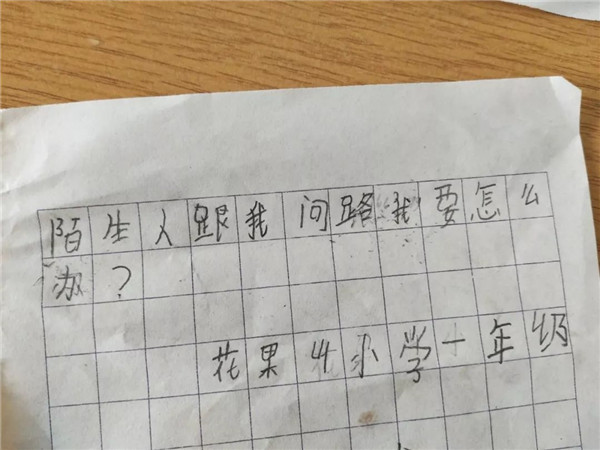 陌生人跟我问路我要怎么
办？
花果山小学一年级